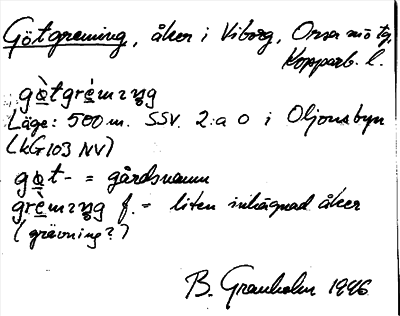 Götgrening, åker i Viborg, Orsa
Kopparb. l.
Läge: 500 m. SSV. 2:a o i Oljonsbyn
(kG103 NV)
= gårdsnamn
f. = liten inhägnad åker
(grävning?)
B. Granholm 1946